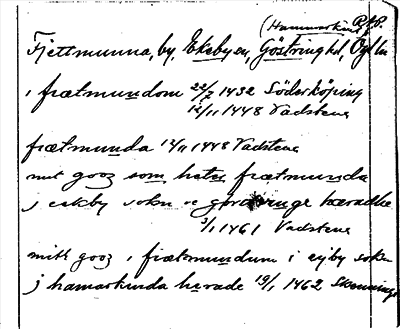 (Hammarkind)
Fjettmunna, by, Ekeby sn, Göstringhd, Ögl ln
i frætmundom 22/2 1432 Söderköping
12/11 1448 Vadstena
frætmunda 12/11 1448 Vadstena
mit gooz som hater frætmunda
j ekby sokn oc gøradinge hæradhe
3/1 1461 Vadstena
mitt gooz i frætmundum i eyby sokn
j hamarkinda hærade 19/1 1462 Skenninge